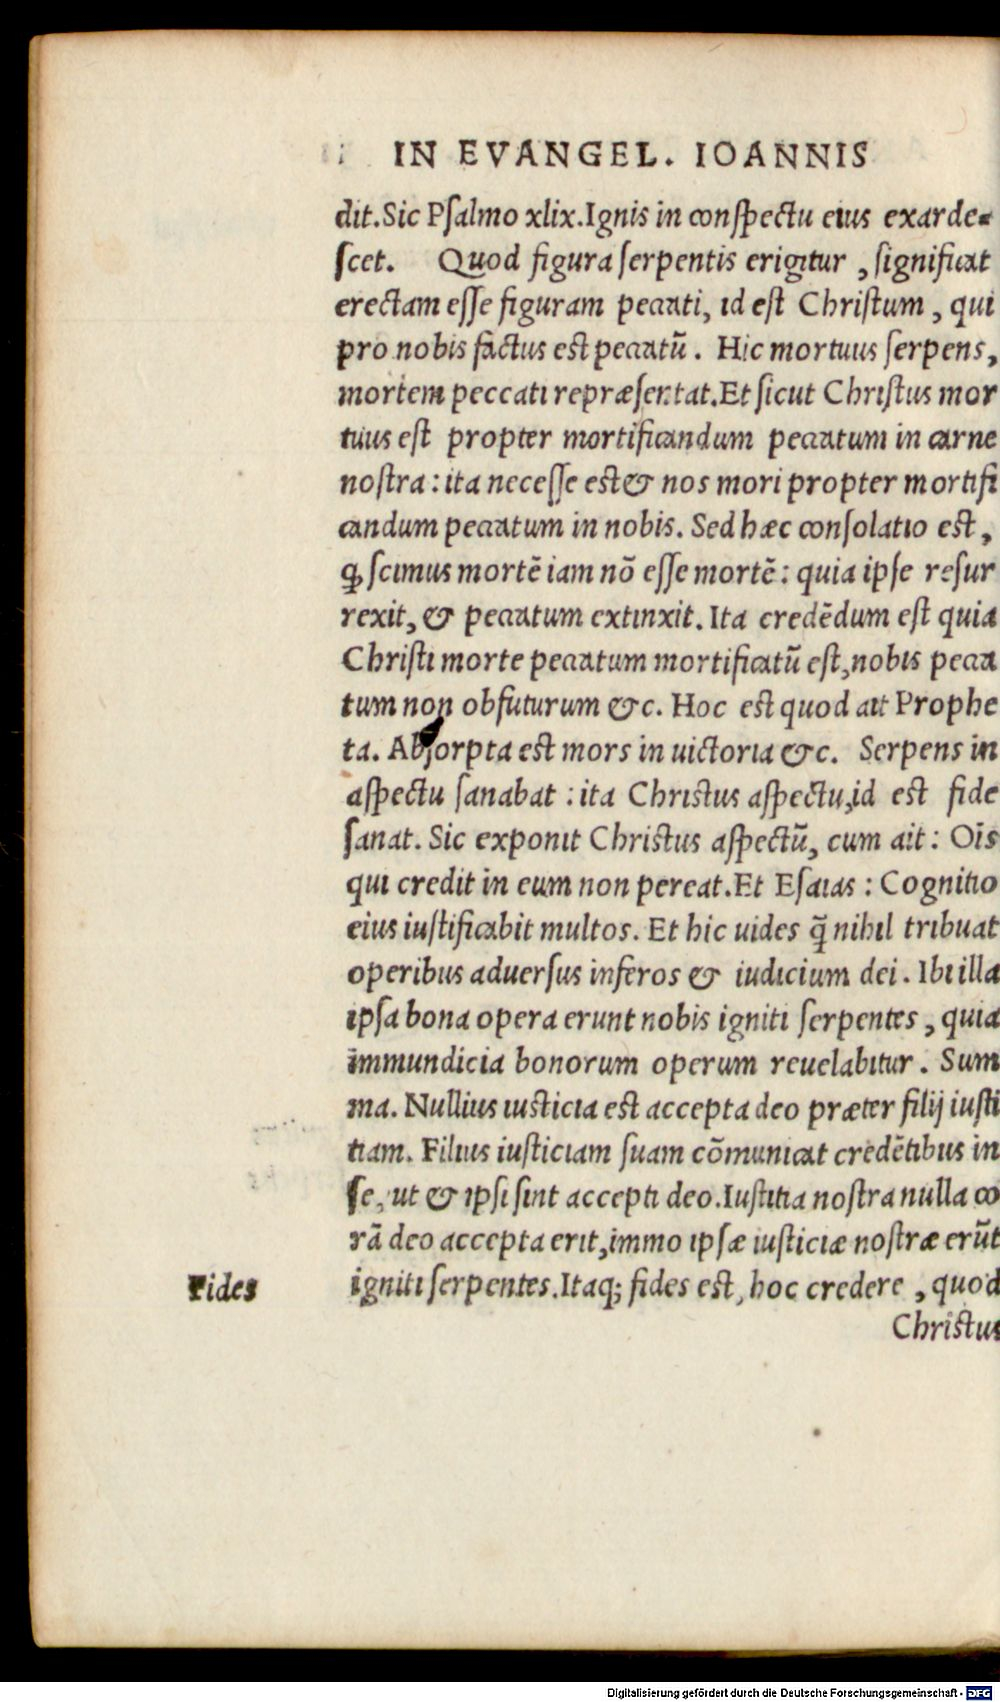 IN EVANGEL. IOANNIS
dit. Sic Pſalmo xlix. Ignis in conſpectu eius exarde-
ſcet. Quod figura ſerpentis erigitur, ſignificat
erectam eſſe figuram peccati, id eſt Chriſtum, qui
pro nobis factus eſt peccatũ. Hic mortuus ſerpens,
mortem peccati repræſentat. Et ſicut Chriſtus mor
tuus eſt propter mortificandum peccatum in carne
noſtra: ita neceſſe eſt & nos mori propter mortifi
candum peccatum in nobis. Sed hæc conſolatio eſt,
ꝙ ſcimus mortẽ iam nõ eſſe mortẽ: quia ipſe reſur
rexit, & peccatum extinxit. Ita credẽdum eſt quia
Chriſti morte peccatum mortificatũ eſt, nobis pecca
tum non obfuturum &c. Hoc eſt quod ait Prophe
ta. Abſorpta eſt mors in uictoria &c. Serpens in
aſpectu ſanabat: ita Chriſtus aſpectu, id eſt fide
ſanat. Sic exponit Chriſtus aſpectũ, cum ait: Oĩs
qui credit in eum non pereat. Et Eſaias: Cognitio
eius iuſtificabit multos. Et hic uides q̃ nihil tribuat
operibus aduerſus inferos & iudicium dei. Ibi illa
ipſa bona opera erunt nobis igniti ſerpentes, quia
immundicia bonorum operum reuelabitur. Sum
ma. Nullius iuſticia eſt accepta deo præter filij iuſti
tiam. Filius iuſticiam ſuam cõmunicat credẽtibus in
ſe, ut & ipſi ſint accepti deo. Iuſtitia noſtra nulla co
rã deo accepta erit, immo ipſæ iuſticiæ noſtræ erũt
igniti ſerpentes. Itaq; fides eſt, hoc credere, quod
Fides
Chriſtus
Digitalisierung gefördert durch die Deutsche Forschungsgemeinschaft - DFG